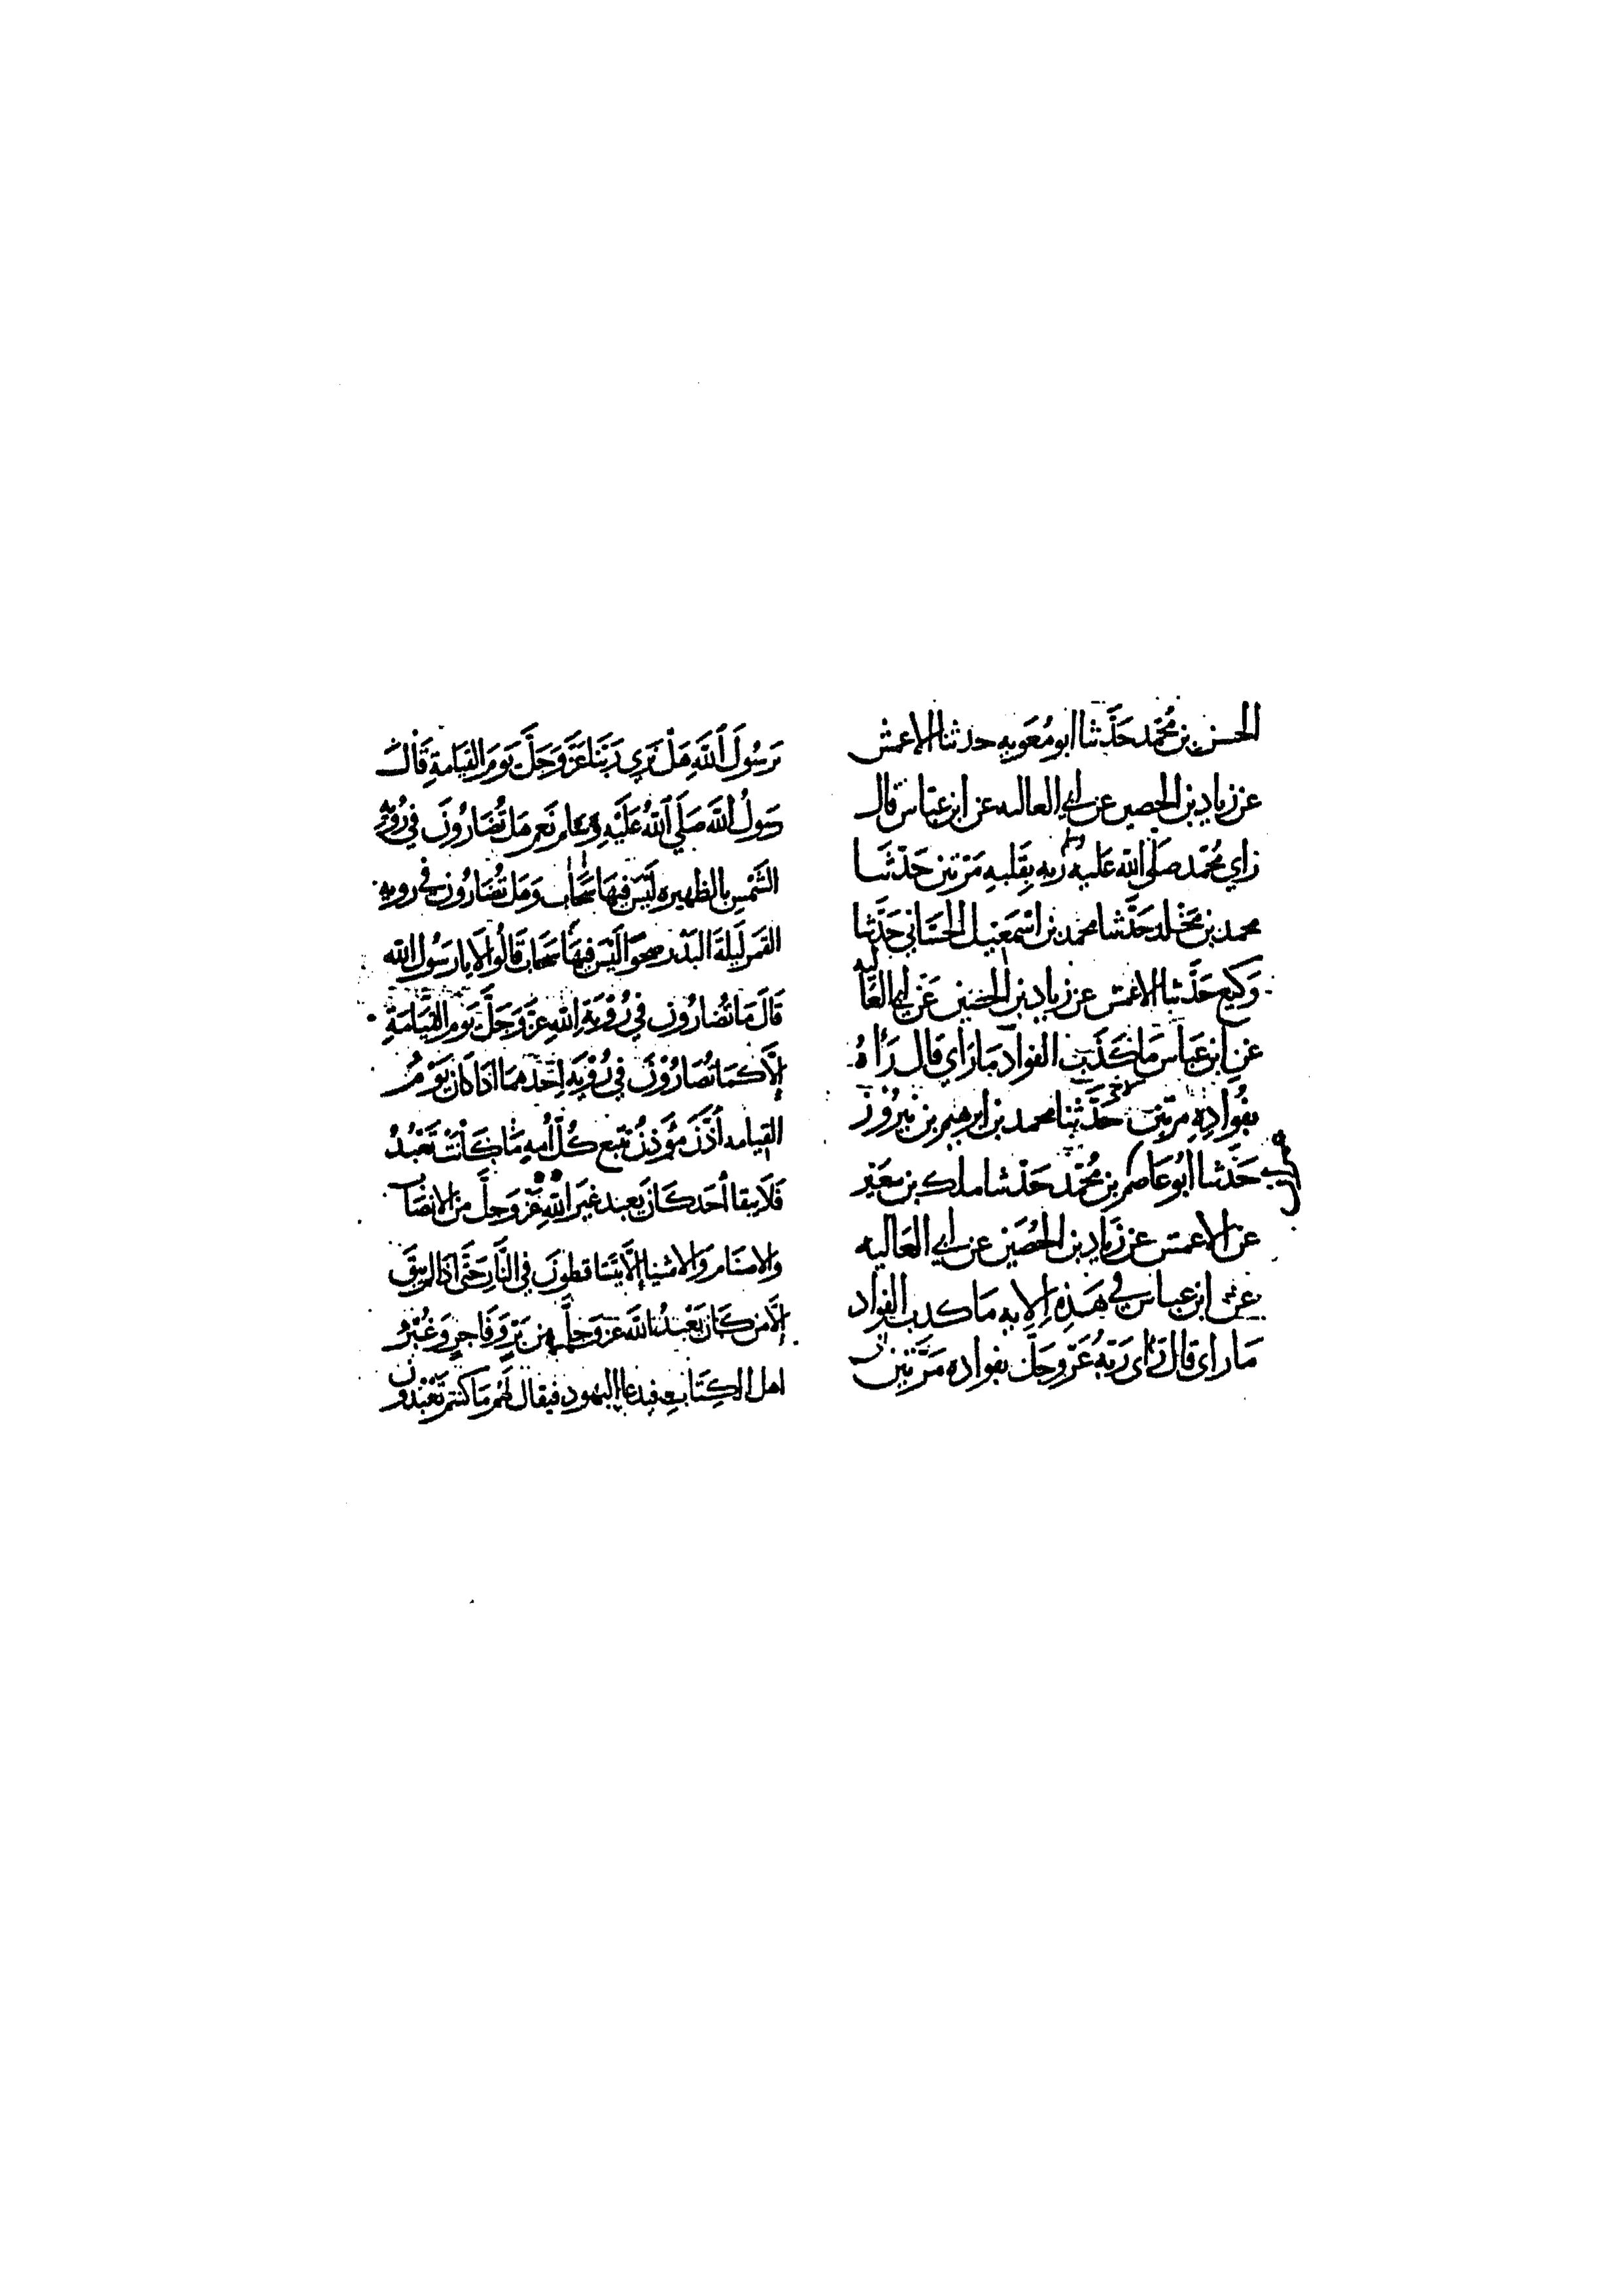 الحسن بن مُحمّد حَدَّثنا ابو مُعَويه حدثنا الاعمش
عن زياد بن الحصين عن ابي العاليه عن ابن عبّاس قال
رَاي مُحمّد صَلَّي الله عَليه وسلم ربه بِقَلبِهِ مَرّتين حَدّثنَا
محمد بن مَخلد حَدَّثنا محمد بن اسْمَعيل الحَسّاني حَدَّثنا
وَكيع حَدَّثنا الاعمش عن زياد بن الحصين عَن ابي العَاليه
عن ابن عَباس مَا كَذَب الفواد مَا رَاي قال رَآهُ
بفُوادِهِ مرتين حَدَّثنا محمد بن ابرهيم بن نيرُوز
حَدَّثنا ابُو عَاصم بن مُحمّد حَدّثنا ملك بن سعَير
عن الاعمش عن زيَاد بن الحُصَين عن ابي العَاليه
عن ابن عباس في هَذِهِ الايه مَا كدب الفواد
مَا راي قال رَاي رَبَّهُ عَزّ وجَلّ بفواده مَرَّتَين
يَرسُولَ اللهِ هَلْ نَرَي رَبَّنَا عَزَّ وَجَلَّ يَومَ القيَامَةِ قَالَ
رَسُولُ اللهِ صَلَّي اللهُ عَلَيْهِ وسلم نَعَم هَل تُضَارُونَ في رُؤيَةِ
الشَّمْسِ بالظهيره لَيْسَ فيهَا سَحَاب وَهَل تُضَارُون في رويه
القَمَر لَيلَةَ البَدْر صحوًا لَيْسَ فيهَا سَحَاب قَالُوا لا يا رَسُول الله
قَالَ مَا تُضارُون في رُؤْيَةِ اللهِ عزَّ وَجَلَّ يَوم القيَامَةِ
إلَّا كمَا تُضَارُوْنَ في رُؤْيَةِ احَدهمَا اذَا كَان يَوْمُ
القيامه أذَّنَ مؤَذِنٌ تتبع كُلُّ امّةٍ مَا كَانَتْ تَعْبُدُ
فَلَا يبقا أحَد كَانَ يعبد غيَر اللهِ عَزّ وَجلَّ من الانصَاب
والاصنَام وَالاشيا إلَّا يَتَسَاقطونَ في النَّارِ حَتَّى اذا لم يبقَ
إلَّا من كَانَ يَعْبُدُ اللهَ عزّ وَجلَّ من بَرّ وَفَاجرٍ وَغُبَّرُ
اهل الكِتَابِ فيدعا اليهود فيقال لَهُم مَا كنتم تَعْبُدُون